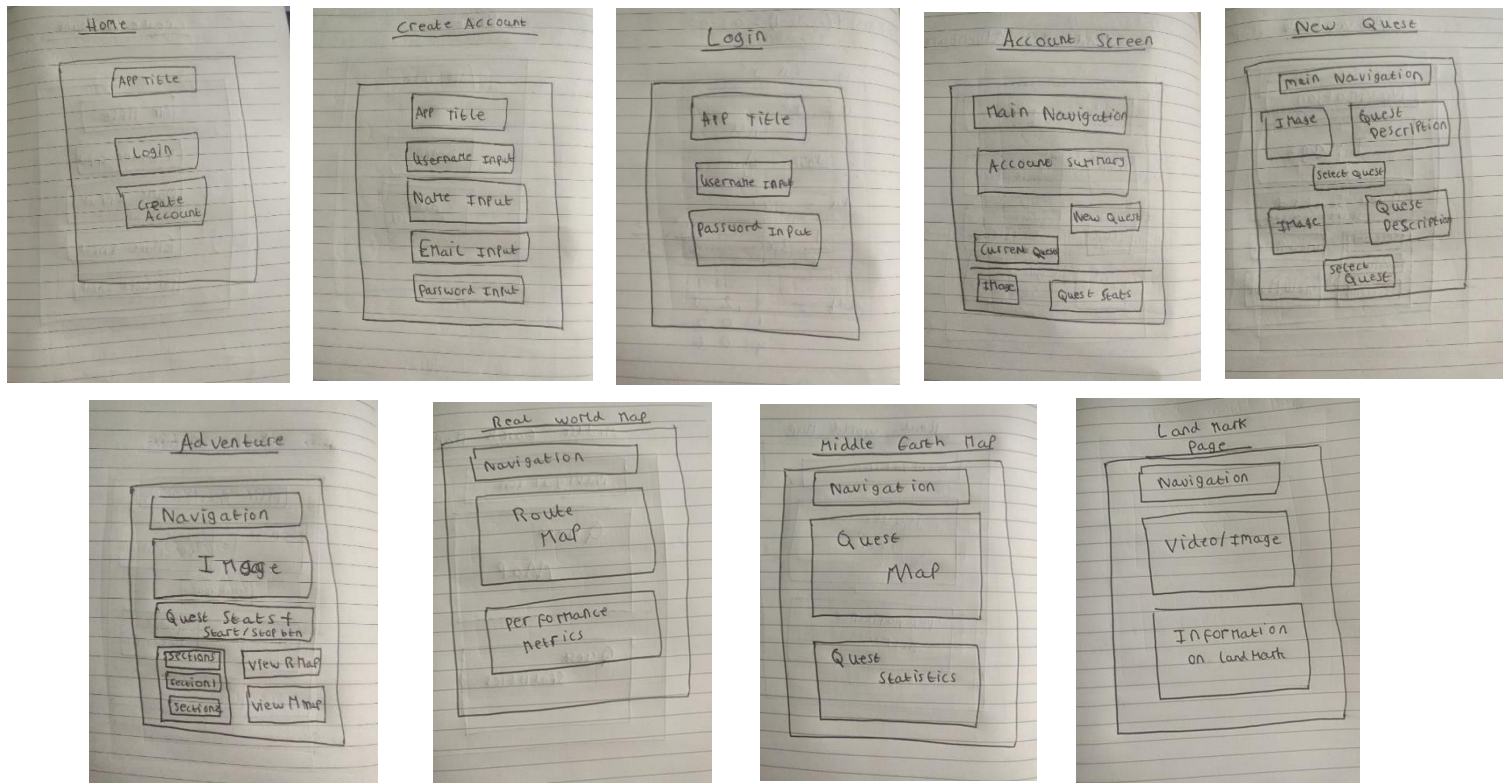 Home
APP TITLE
Login
Create
Account
Create Account
App Title
Username Input
Name Input
Email Input
Password Input
Login
App Title
Username Input
Password Input
Account Screen
Main Navigation
Account Summary
New Quest
Current Quest
Image
Quest Stats
New Quest
Main Navigation
Image
Quest
Description
Select Quest
Image
Quest
Description
Select
Quest
Adventure
Navigation
Image
Quest Stats +
Start/Stop btn
Sections
Section1
Section2
View RMap
View MMap
Real World Map
Navigation
Route
Map
Performance
Metrics
Middle Earth Map
Navigation
Quest
Map
Quest
Statistics
Land Mark
Page
Navigation
Video/Image
Information
on Landmark